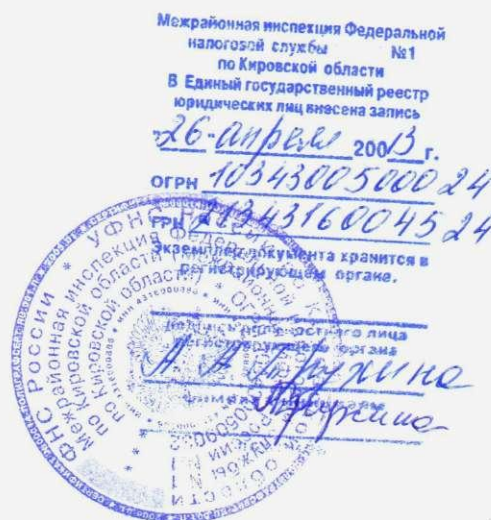 Межрайонная инспекция Федеральной
налоговой службы №1
по Кировской области
В Единый государственный реестр
юридических лиц внесена запись
"26" апреля 20013 г.
ОГРН 1034300500024
ГРН 2134316004524
Экземпляр документа хранится в
регистрирующем органе.
подпись должностного лица
регистрирующего органа
А. А. Пружина
ФНС РОССИИ * УФНС РОССИИ
Межрайонная инспекция Федеральной
по Кировской области